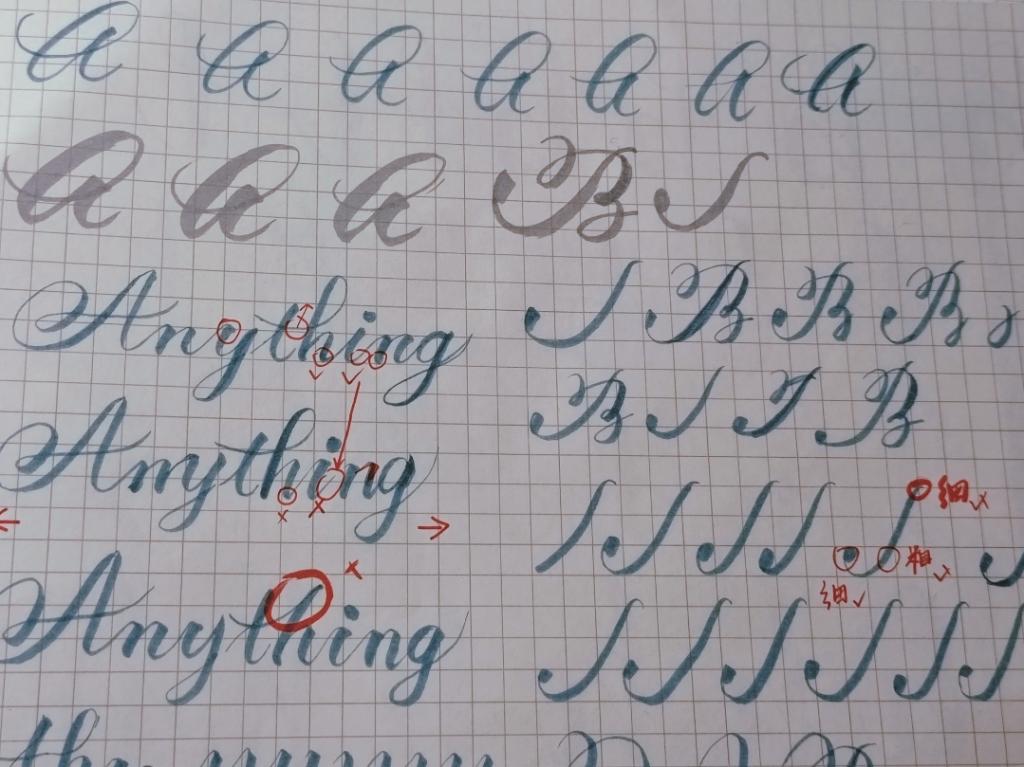 A A A A A A A
A A A B
Anything
B B B
B B
Anything
细
粗
细
Anything
the